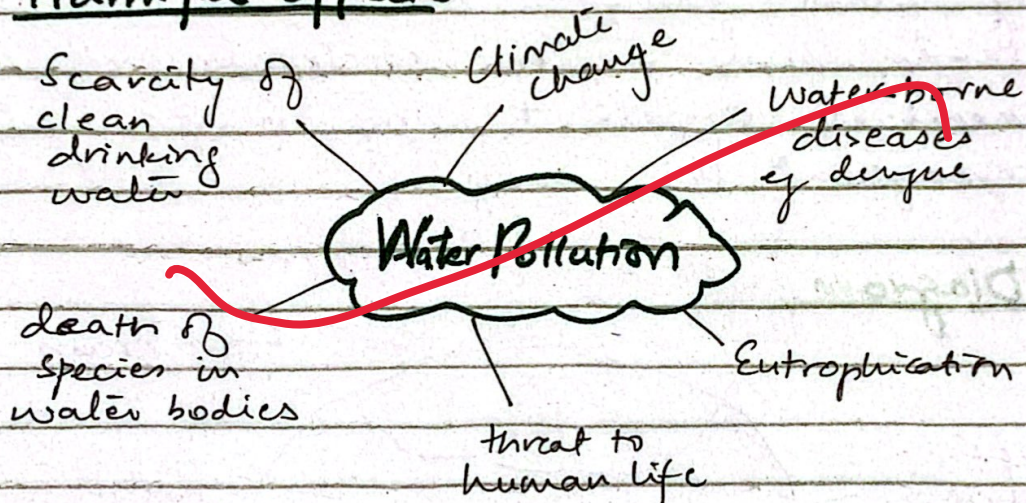 Harmful effects
Scarcity of
clean
drinking
water
Climate
change
Water-borne
diseases
eg dengue
Water Pollution
death of
species in
water bodies
Eutrophication
threat to
human life
Diagram